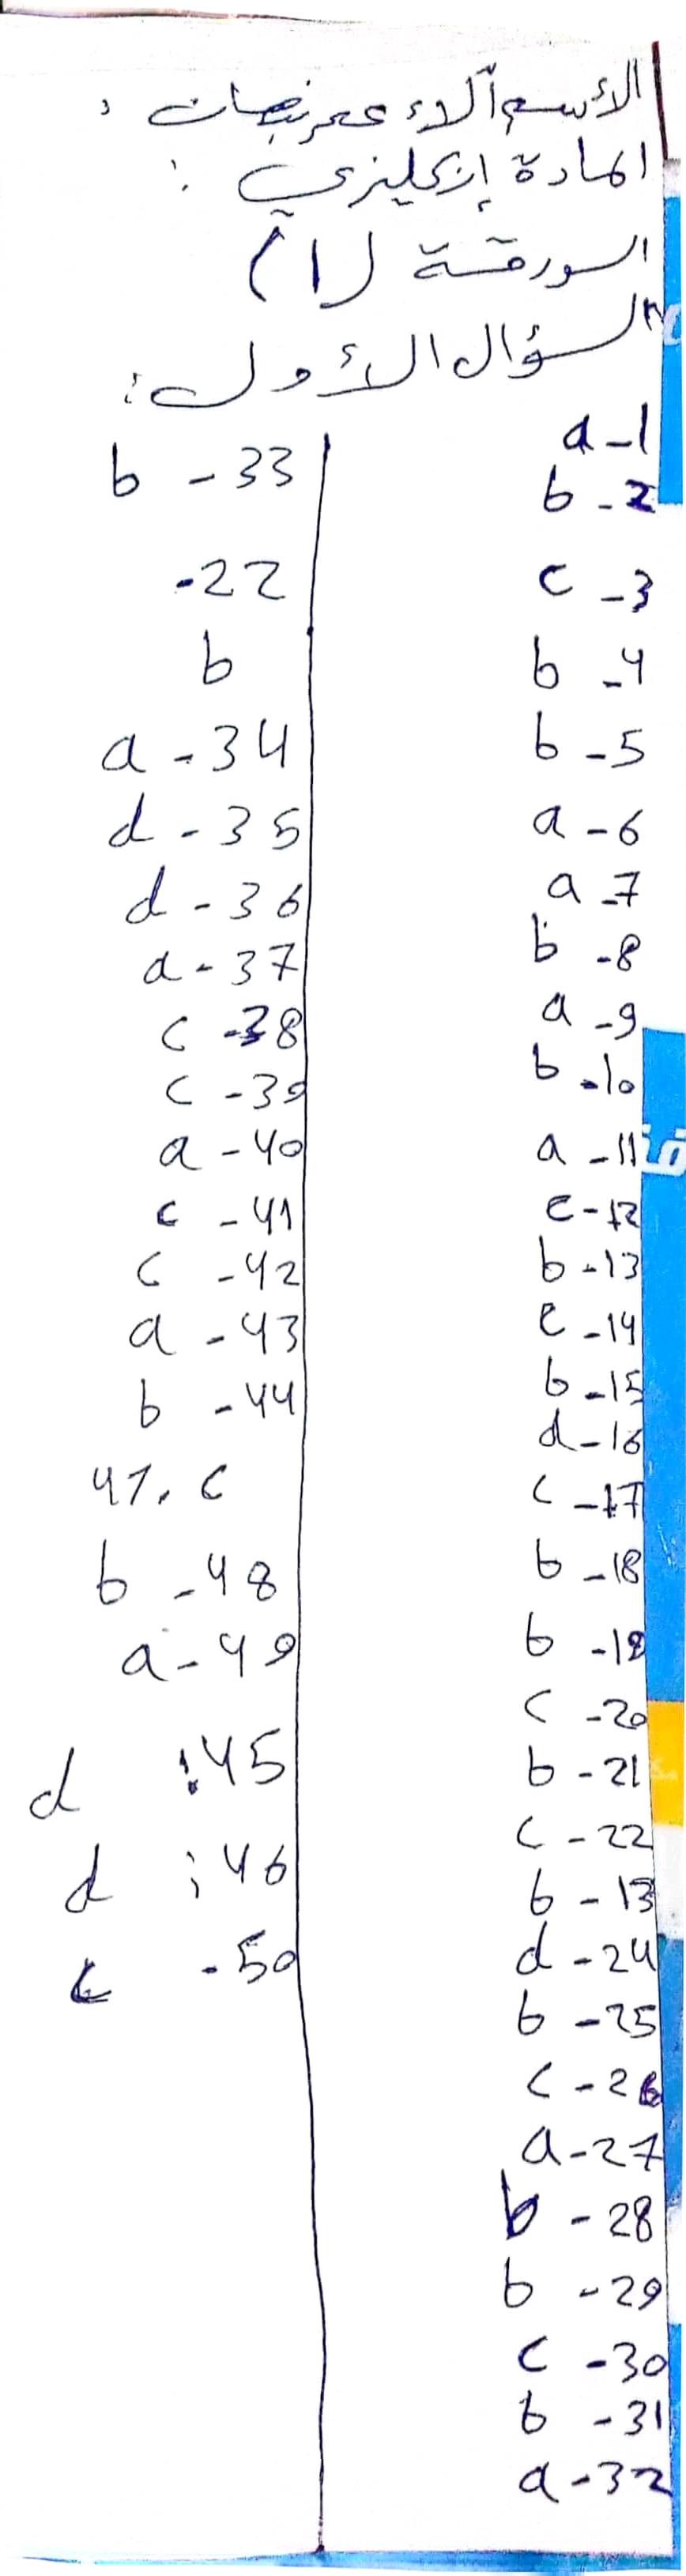 الأسم آلاء عمر نبهات :
المادة إنكليزي :
الورقة (1)
السؤال الأول :
a - 1
b - 2
c - 3
b - 4
b - 5
a - 6
a - 7
b - 8
a - 9
b - 10
a - 11
c - 12
b - 13
c - 14
b - 15
d - 16
c - 17
b - 18
b - 19
c - 20
b - 21
c - 22
b - 13
d - 24
b - 25
c - 26
a - 27
b - 28
b - 29
c - 30
b - 31
a - 32
b - 33
-22
b
a - 34
d - 35
d - 36
a - 37
c - 38
c - 39
a - 40
c - 41
c - 42
a - 43
b - 44
47. c
b - 48
a - 49
d :45
d :46
c - 50